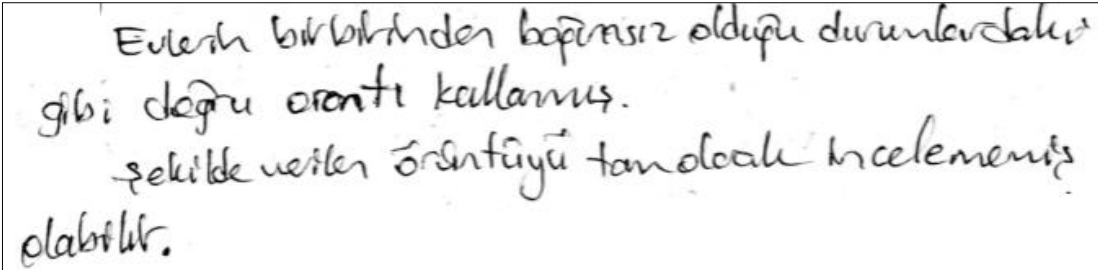 Evlerin birbirinden bağımsız olduğu durumlardaki
gibi doğru orantı kullanmış.
Şekilde verilen örüntüyü tam olarak incelememiş
olabilir.